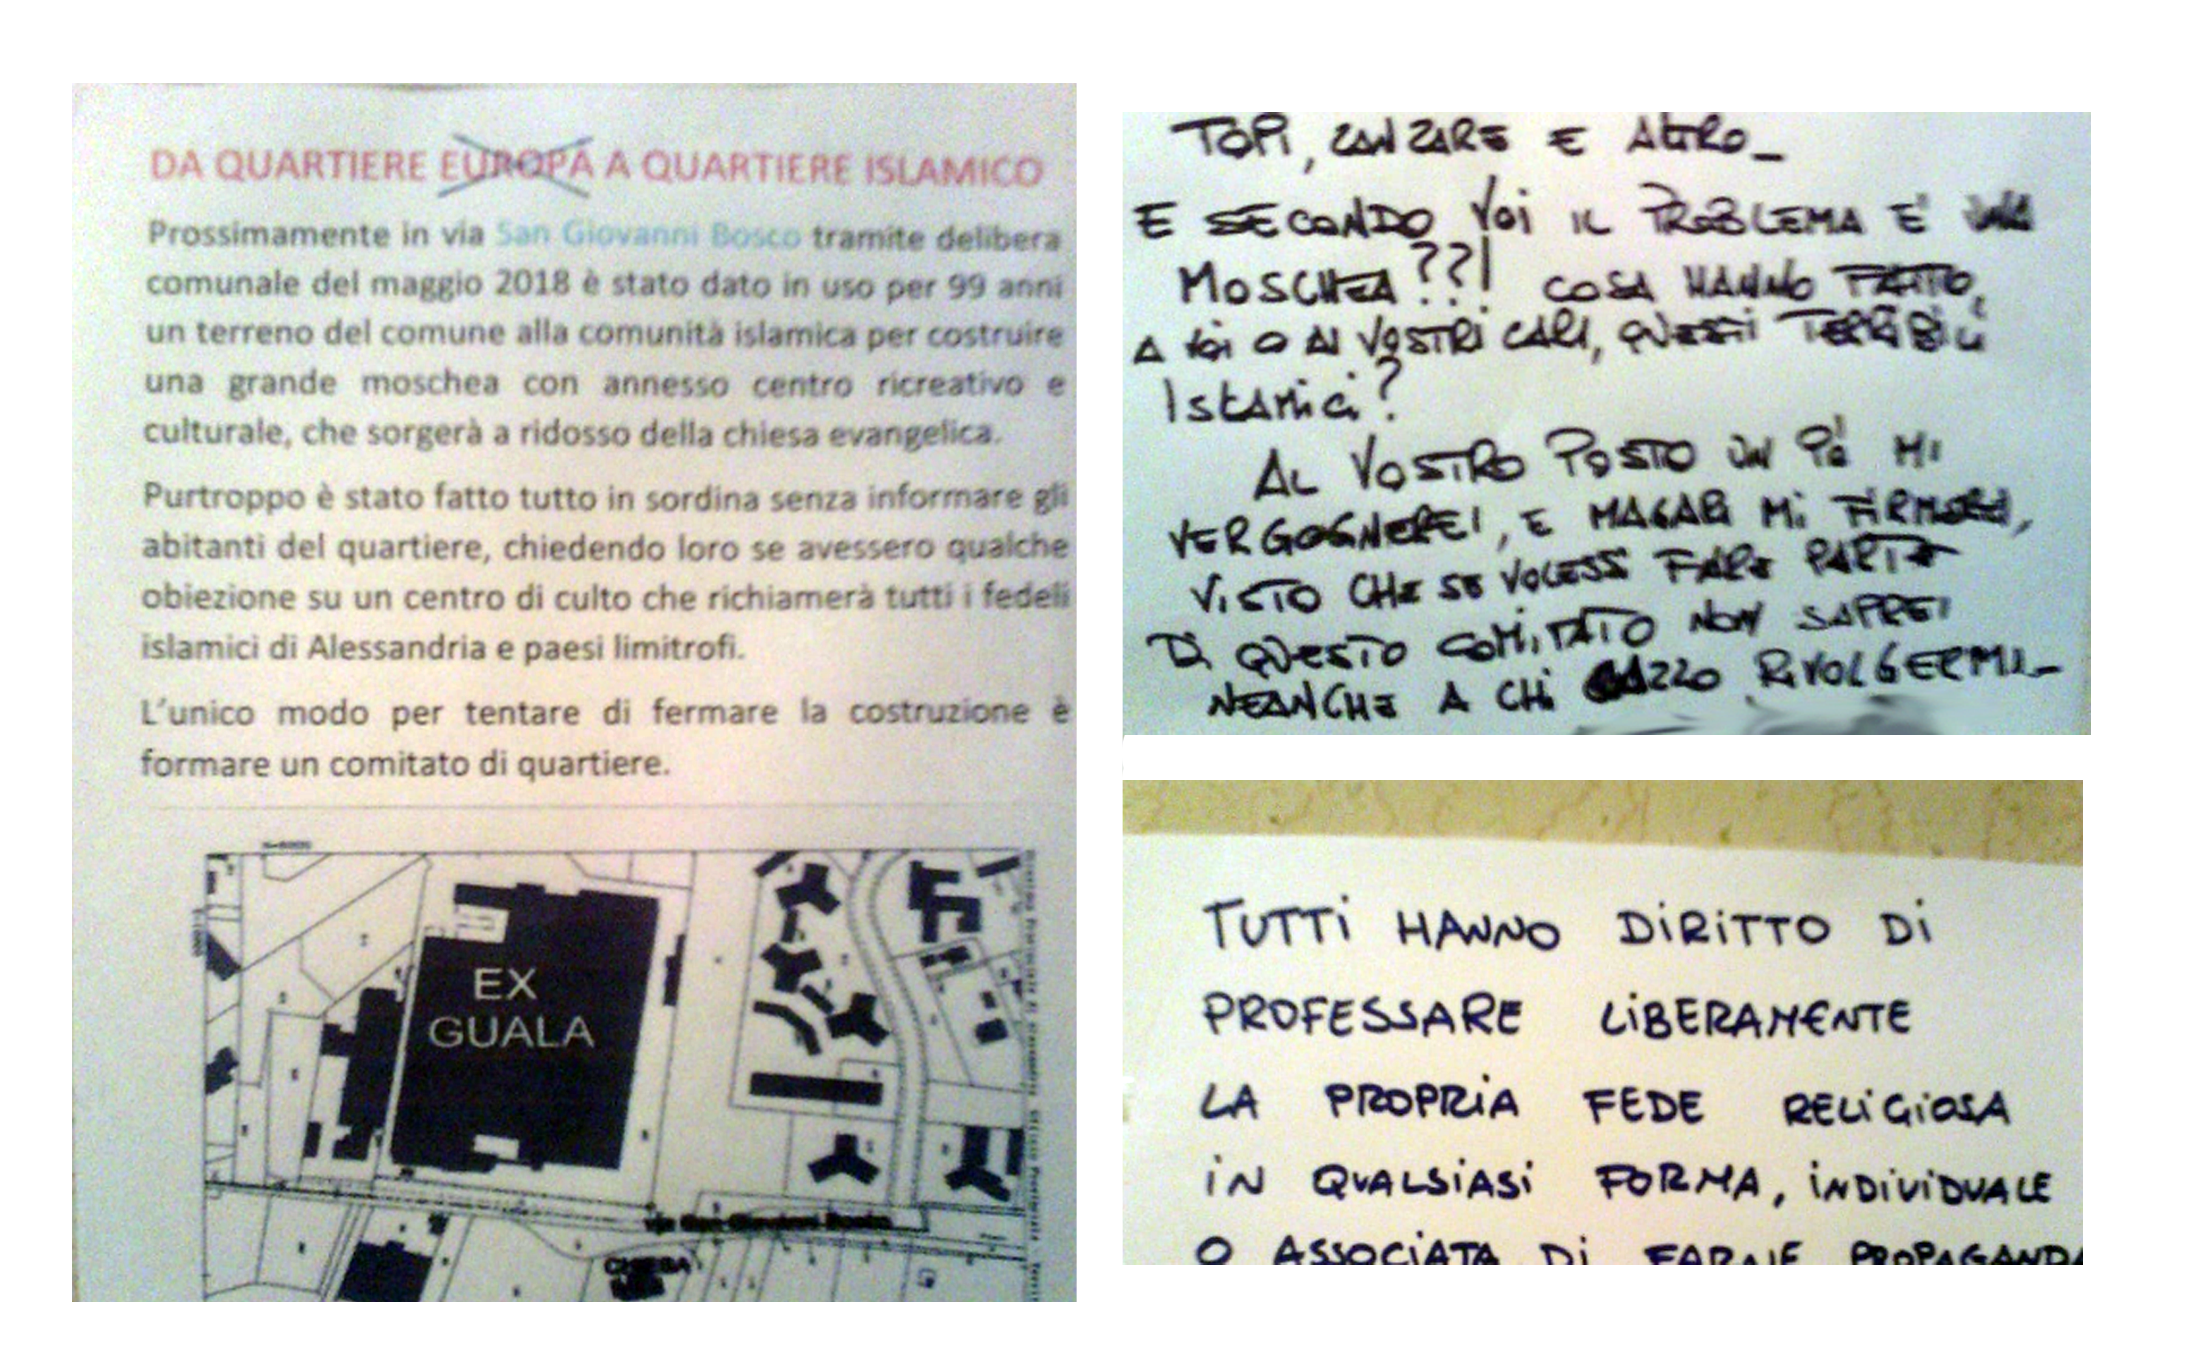 DA QUARTIERE EUROPA A QUARTIERE ISLAMICO
Prossimamente in via San Giovanni Bosco tramite delibera
comunale del maggio 2018 è stato dato in uso per 99 anni
un terreno del comune alla comunità islamica per costruire
una grande moschea con annesso centro ricreativo e
culturale, che sorgerà a ridosso della chiesa evangelica.
Purtroppo è stato fatto tutto in sordina senza informare gli
abitanti del quartiere, chiedendo loro se avessero qualche
obiezione su un centro di culto che richiamerà tutti i fedeli
islamici di Alessandria e paesi limitrofi.
L'unico modo per tentare di fermare la costruzione è
formare un comitato di quartiere.
EX
GUALA
via San Giovanni Bosco
CHIESA
TOPI, ZANZARE E ALTRO_
E SECONDO VOI IL PROBLEMA E' UNA
MOSCHEA??! COSA HANNO FATTO,
A VOI O AI VOSTRI CARI, QUESTI TERRIBILI
ISLAMICI?
AL VOSTRO POSTO UN PO' MI
VERGOGNEREI, E MAGARI MI FIRMEREI,
VISTO CHE SE VOLESSI FARE PARTE
DI QUESTO COMITATO NON SAPREI
NEANCHE A CHI CAZZO RIVOLGERMI_
TUTTI HANNO DIRITTO DI
PROFESSARE LIBERAMENTE
LA PROPRIA FEDE RELIGIOSA
IN QUALSIASI FORMA, INDIVIDUALE
O ASSOCIATA DI FARNE PROPAGANDA